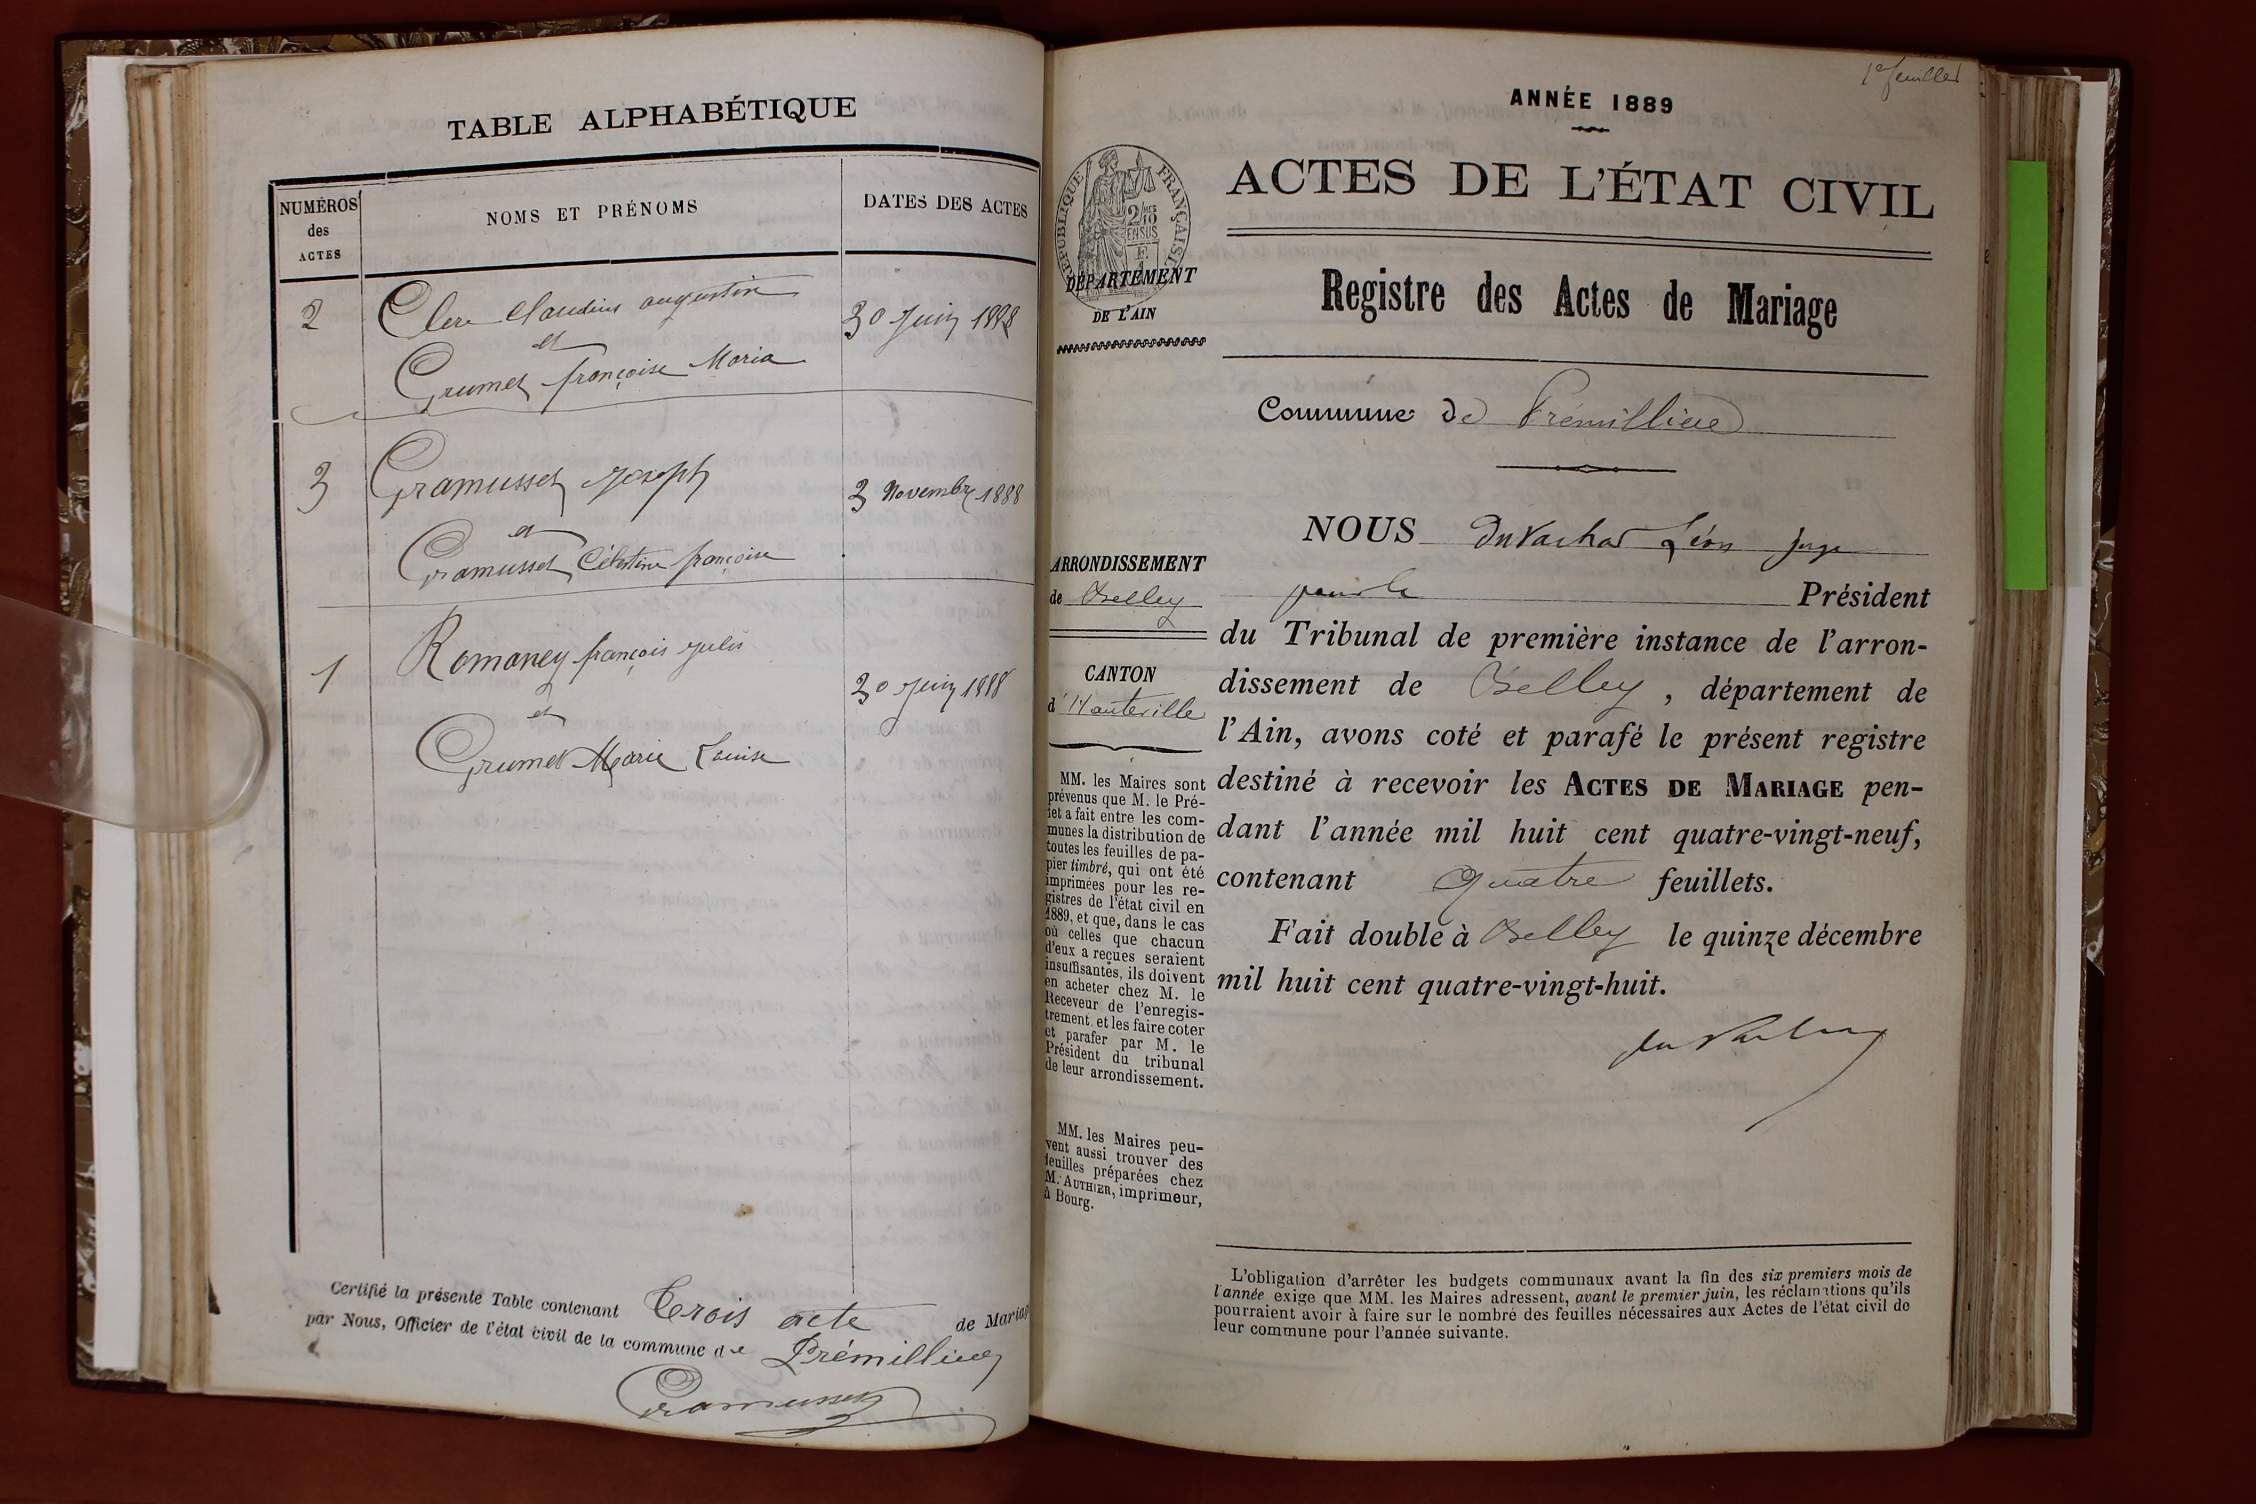 TABLE ALPHABÉTIQUE
NUMÉROS
des
ACTES
NOMS ET PRÉNOMS
DATES DES ACTES
2
Clerc Claudius augustin
et
Grumet françoise Maria
30 Juin 1888
3
Gramusset Joseph
et
Gramusset Célestine françoise
3 Novembre 1888
1
Romaney françois Jules
et
Grumet Marie Louise
30 Juin 1888
Certifié la présente Table contenant Trois acte de Mariage
par Nous, Officier de l'état civil de la commune de Prémillieu
Gramusset
1er feuillet
ANNÉE 1889
RÉPUBLIQUE FRANÇAISE
2/10ES
EN SUS
DÉPARTEMENT
DE L'AIN
ARRONDISSEMENT
de Belley
CANTON
d'Hauteville
MM. les Maires sont
prévenus que M. le Pré-
fet a fait entre les com-
munes la distribution de
toutes les feuilles de pa-
pier timbré, qui ont été
imprimées pour les re-
gistres de l'état civil en
1889, et que, dans le cas
où celles que chacun
d'eux a reçues seraient
insuffisantes, ils doivent
en acheter chez M. le
Receveur de l'enregis-
trement et les faire coter
et parafer par M. le
Président du tribunal
de leur arrondissement.
MM. les Maires peu-
vent aussi trouver des
feuilles préparées chez
M. AUTHIER, imprimeur,
à Bourg.
ACTES DE L'ÉTAT CIVIL
Registre des Actes de Mariage
Commune de Prémillieu
NOUS Duvachat Léon juge
pour le Président
du Tribunal de première instance de l'arron-
dissement de Belley, département de
l'Ain, avons coté et parafé le présent registre
destiné à recevoir les ACTES DE MARIAGE pen-
dant l'année mil huit cent quatre-vingt-neuf,
contenant Quatre feuillets.
Fait double à Belley le quinze décembre
mil huit cent quatre-vingt-huit.
L'obligation d'arrêter les budgets communaux avant la fin des six premiers mois de
l'année exige que MM. les Maires adressent, avant le premier juin, les réclamations qu'ils
pourraient avoir à faire sur le nombré des feuilles nécessaires aux Actes de l'état civil de
leur commune pour l'année suivante.